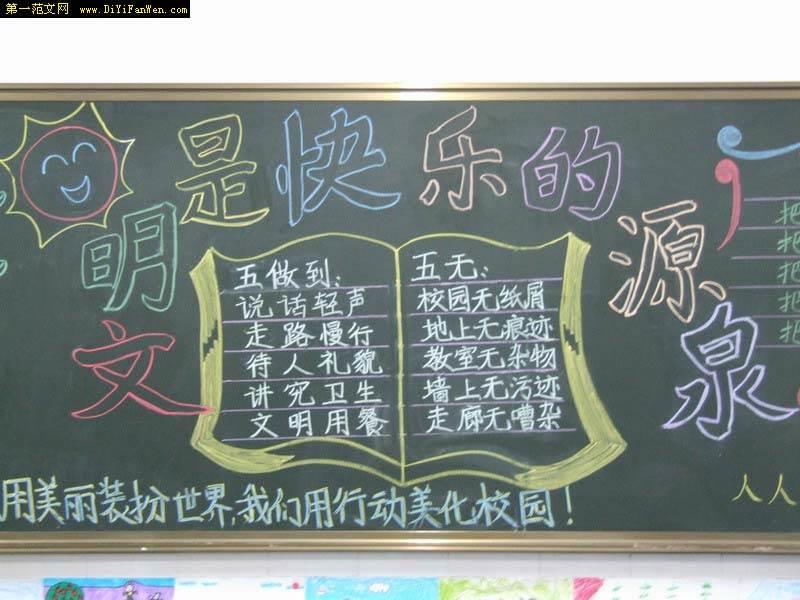 第一范文网 www.DiYiFanWen.com
文明是快乐的源泉
五做到:
说话轻声
走路慢行
待人礼貌
讲究卫生
文明用餐
五无:
校园无纸屑
地上无痕迹
教室无杂物
墙上无污迹
走廊无嘈杂
把
把
把
把
把
用美丽装扮世界,我们用行动美化校园!
人人